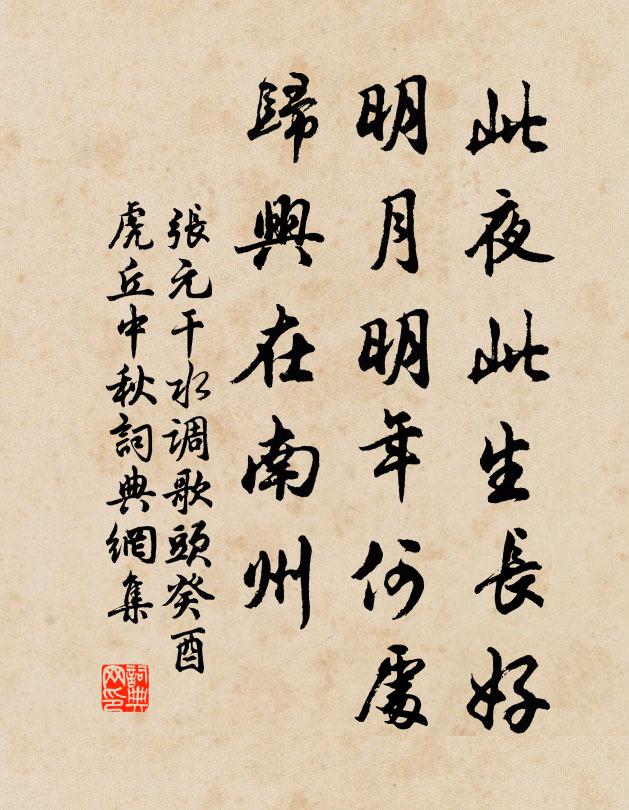 此夜此生長好
明月明年何處
歸興在南州
張元干水调歌頭癸酉
虎丘中秋詞典網集
詞典
网印